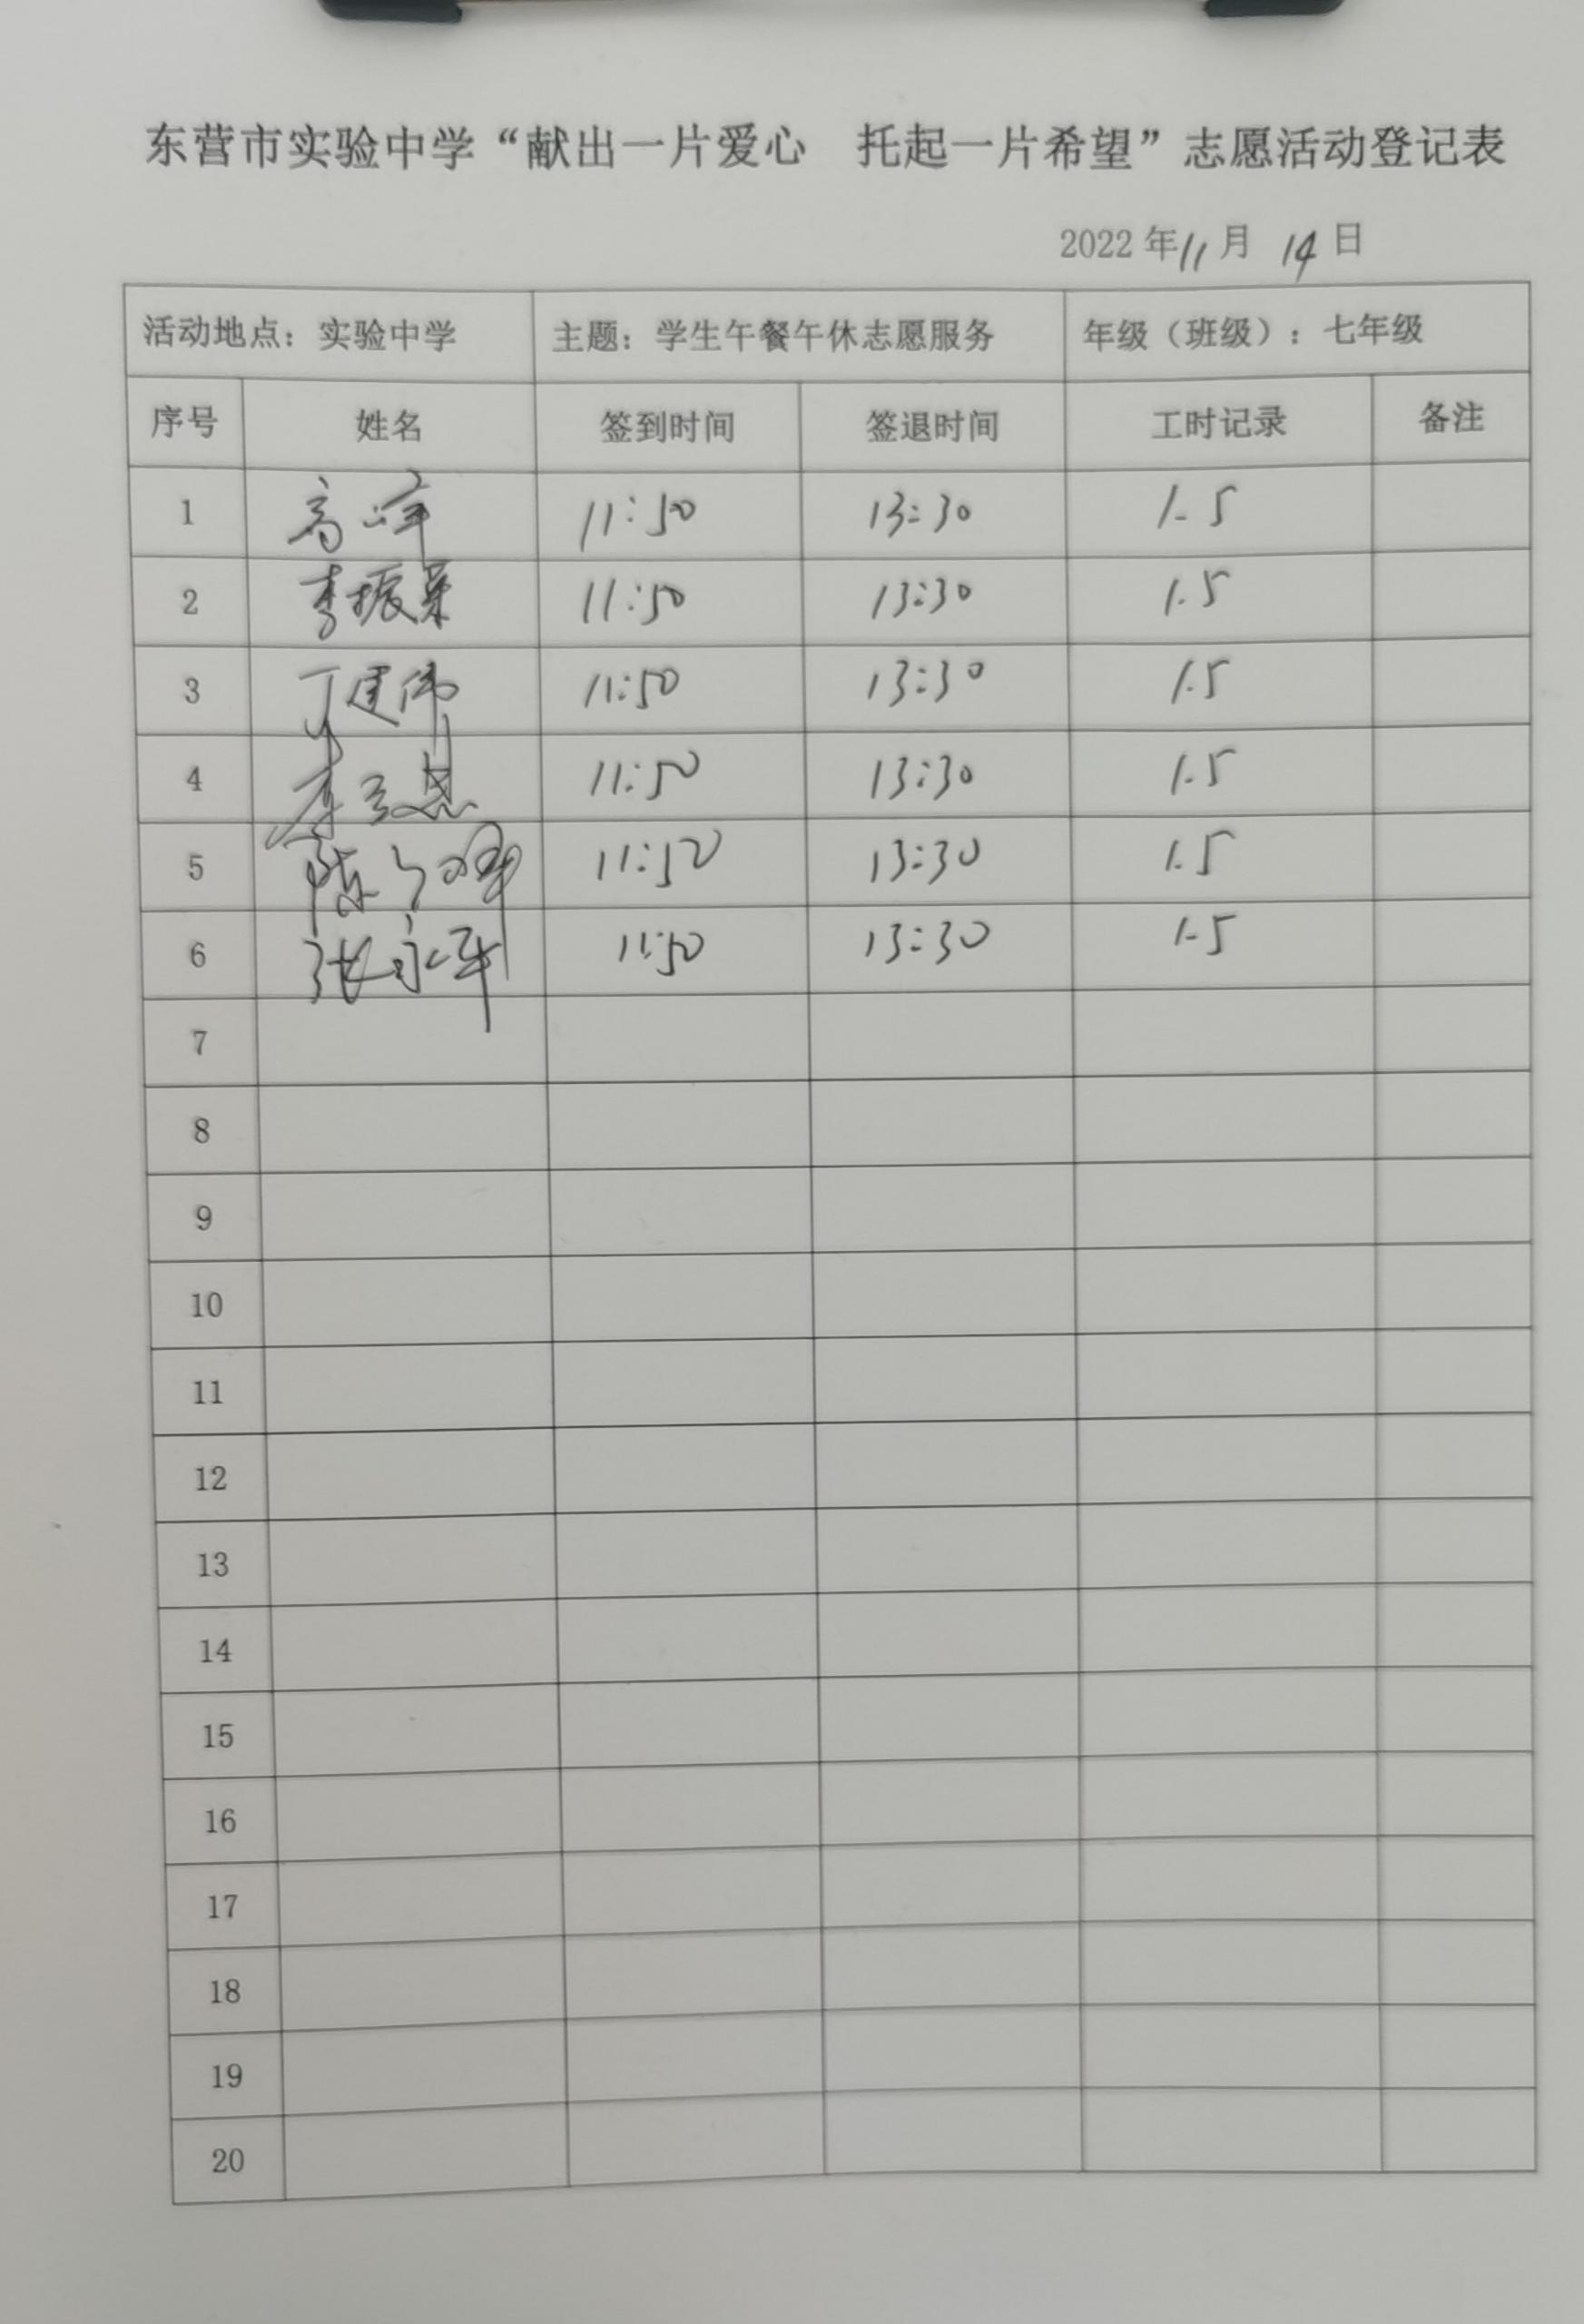 东营市实验中学“献出一片爱心 托起一片希望”志愿活动登记表
2022年11月14日
活动地点：实验中学 主题：学生午餐午休志愿服务 年级（班级）：七年级
序号 姓名 签到时间 签退时间 工时记录 备注
1 高峰 11:50 13:30 1.5
2 李振 11:50 13:30 1.5
3 丁建伟 11:50 13:30 1.5
4 李 11:50 13:30 1.5
5 陈 11:50 13:30 1.5
6 张永军 11:50 13:30 1.5
7
8
9
10
11
12
13
14
15
16
17
18
19
20